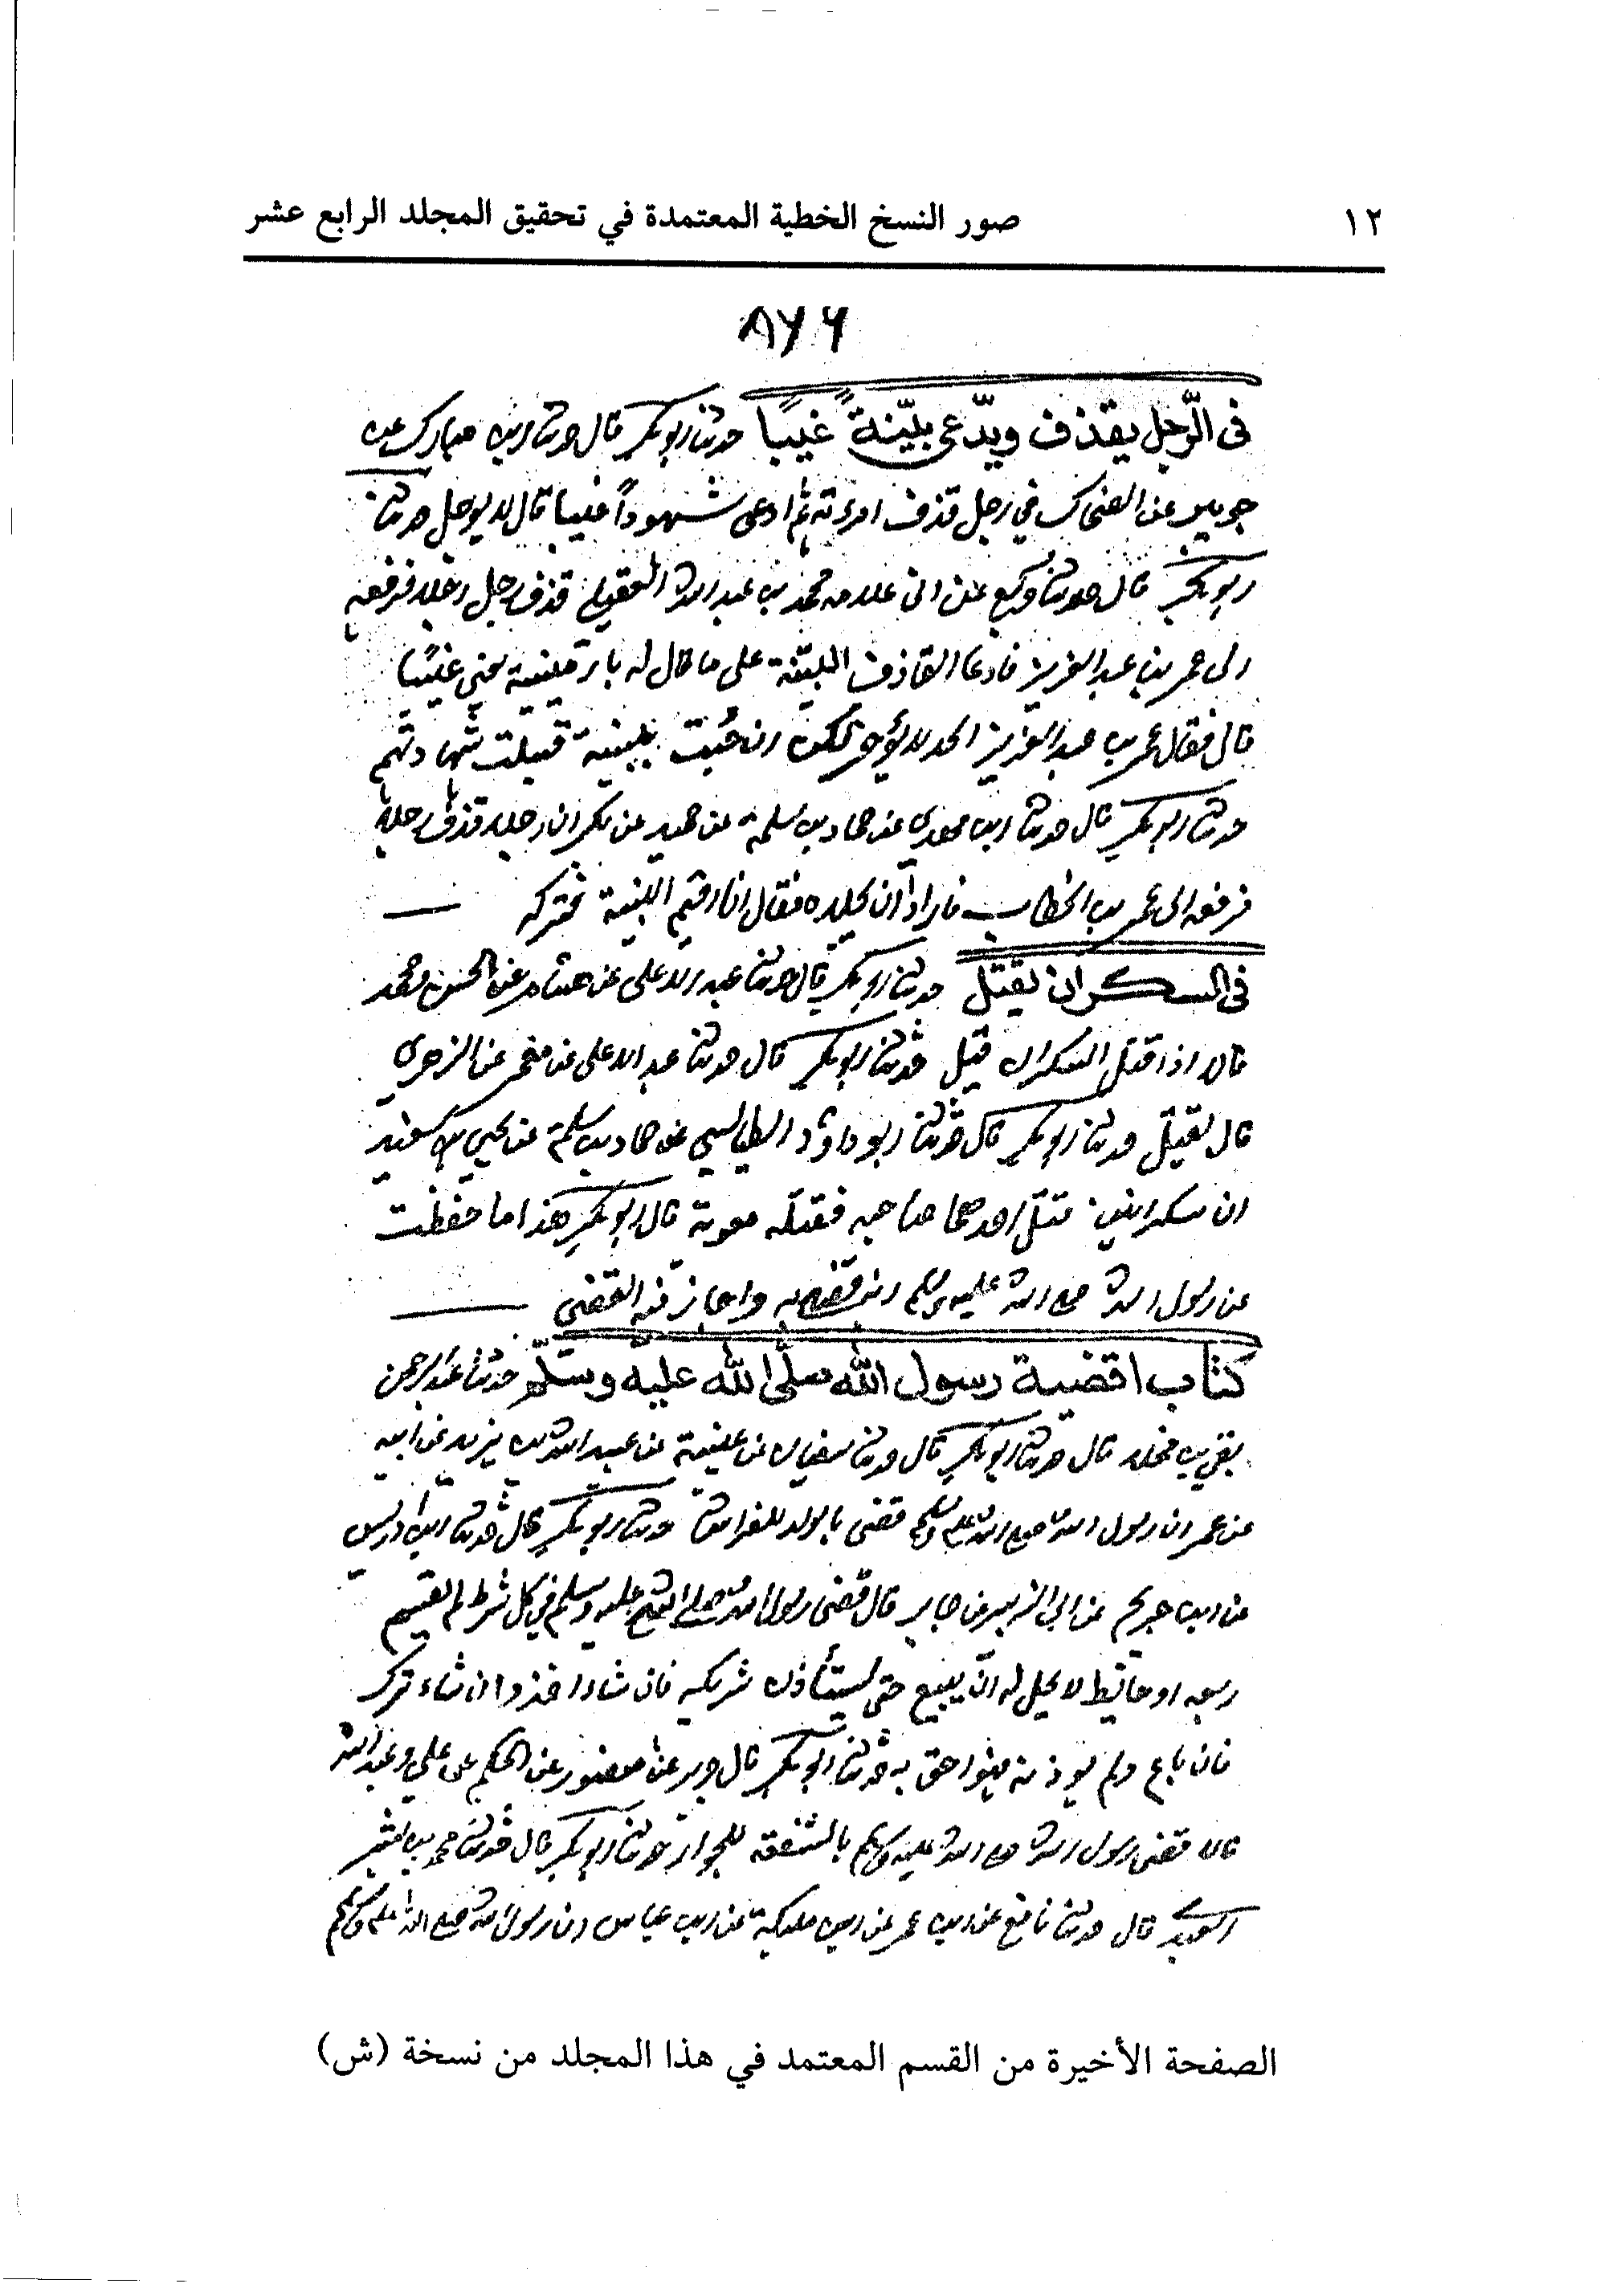 ١٢ صور النسخ الخطية المعتمدة في تحقيق المجلد الرابع عشر
٨٧٦
في الرّجل يقذف ويدّعي بيّنةً غيبًا حدثنا ابوبكر قال حدثنا ابن مبارك عن
جويبر عن الضحاك في رجل قذف امرءته ثم ادعى شهوداً غيبا قال لا يوجل حدثنا
ابوبكر قال حدثنا وكيع عن ابن علاثه محمد بن عبد الله العقيلي قذف رجل رجلا فرفعه
الى عمر بن عبد العزيز فادعا القاذف البيّنة على ما قال له يعني غيبًا
قال فقال عمر بن عبد العزيز الحد لا يؤخر لكن ان جئت ببينة قبلت شهادتهم
حدثنا ابوبكر قال حدثنا ابن مهدي عن حماد بن سلمة عن حميد عن بكر ان رجلا قذف رجلا
فرفعه الى عمر بن الخطاب فاراد ان يجلده فقال انا اقيم البينة فتركه
في السكران يقتل حدثنا ابوبكر قال حدثنا عبد الاعلى عن هشام عن الحسن ومحمد
قالا اذا قتل السكران قتل حدثنا ابوبكر قال حدثنا عبد الاعلى عن معمر عن الزهري
قال يقتل حدثنا ابوبكر قال حدثنا ابو داود الطيالسي عن حماد بن سلمة عن يحيى بن سعيد
ان سكرانين قتل احدهما صاحبه فقتله معوية قال ابوبكر هذا ما حفظت
عن رسول الله صلى الله عليه وسلم انه قضى به واجاز فيه القضى
كتاب اقضية رسول الله صلّى الله عليه وسلّم حدثنا عبد الرحمن
بقي بن مخلد قال حدثنا ابوبكر قال حدثنا سفيان بن عيينة عن عبيد الله بن يزيد عن ابيه
عن عمر ان رسول الله صلى الله عليه وسلم قضى بالولد للفراش حدثنا ابوبكر قال حدثنا ابن ادريس
عن ابن جريج عن ابي الزبير عن جابر قال قضى رسول الله صلى الله عليه وسلم في كل شرط لم يقسم
ربعه او حائط لا يحل له ان يبيع حتى يستأذن شريكه فان شاء اخذ وان شاء ترك
فان باع ولم يوذنه فهو احق به حدثنا ابوبكر قال جرير عن منصور عن الحكم عن علي وعبد الله
قالا قضى رسول الله صلى الله عليه وسلم بالشفعة للجوار حدثنا ابوبكر قال حدثنا محمد بن بشر
العبدي قال حدثنا نافع عن ابن عمر عن ابن مليكة عن ابن عباس ان رسول الله صلى الله عليه وسلم
الصفحة الأخيرة من القسم المعتمد في هذا المجلد من نسخة (ش)